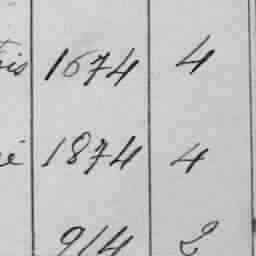 is 1674 4
é 1874 4
914 2